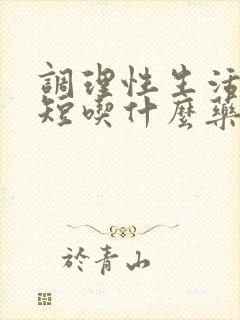 調理性生活
短喫什麼藥
於青山